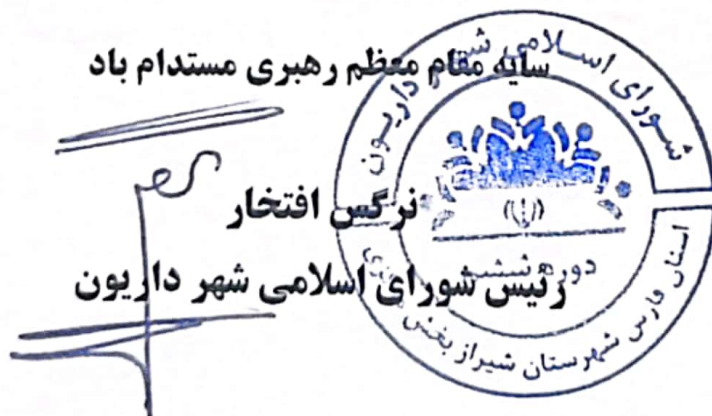 سایه مقام معظم رهبری مستدام باد
نرگس افتخار
رئیس شورای اسلامی شهر داریون
شورای اسلامی شهر داریون
دوره ششم
استان فارس شهرستان شیراز بخش